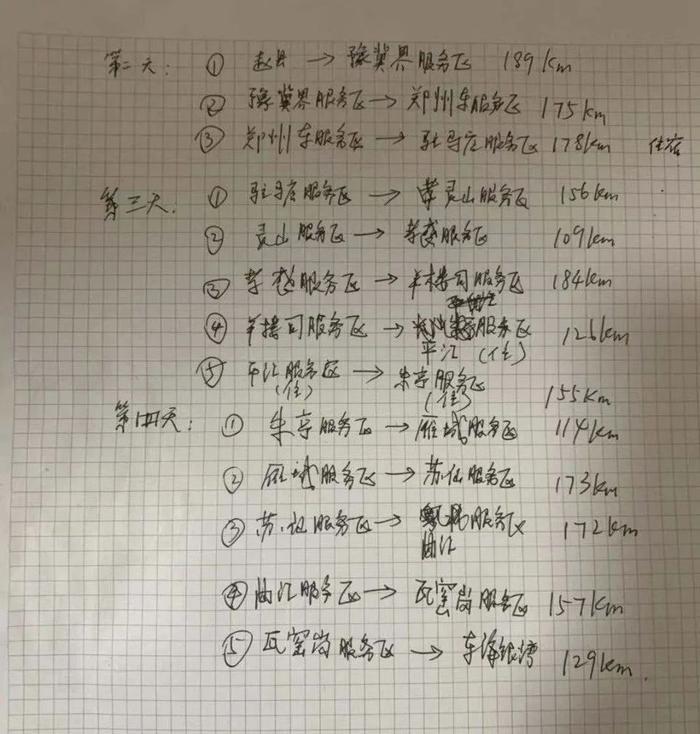 第二天: ① 赵县 → 豫冀界服务区 189km
② 豫冀界服务区 → 郑州东服务区 175km
③ 郑州东服务区 → 驻马店服务区 178km 住宿
第三天. ① 驻马店服务区 → 灵山服务区 156km
② 灵山服务区 → 孝感服务区 109km
③ 孝感服务区 → 羊楼司服务区 184km
④ 羊楼司服务区 → 服务区 126km
平江 (住)
⑤ 平江服务区 → 朱亭服务区
(住) (住) 155km
第四天: ① 朱亭服务区 → 雁城服务区 114km
② 雁城服务区 → 苏仙服务区 173km
③ 苏仙服务区 → 服务区 172km
曲江
④ 曲江服务区 → 瓦窑岗服务区 157km
⑤ 瓦窑岗服务区 → 东海银湾 129km.